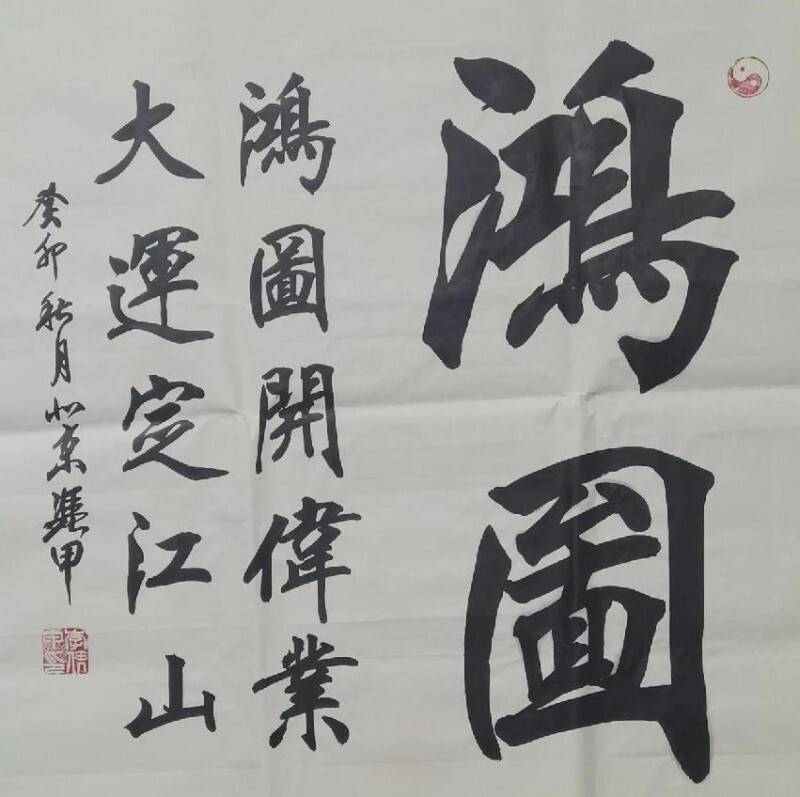 鴻圖
鴻圖開偉業
大運定江山
癸卯秋月北京逛甲